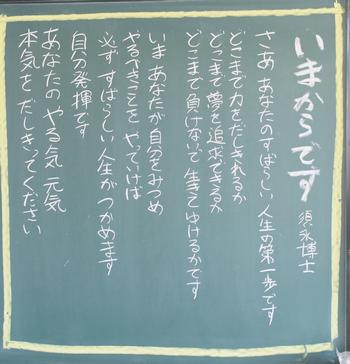 いまからです
須永博士
さあ あなたのすばらしい人生の第一歩です
どこまで力をだしきれるか
どこまで夢を追求できるか
どこまで負けないで生きてゆけるかです
いま あなたが自分をみつめ
やるべきことを やっていけば
必ず すばらしい人生が つかめます
自分発揮です
あなたの やる気 元気
本気を だしきってください